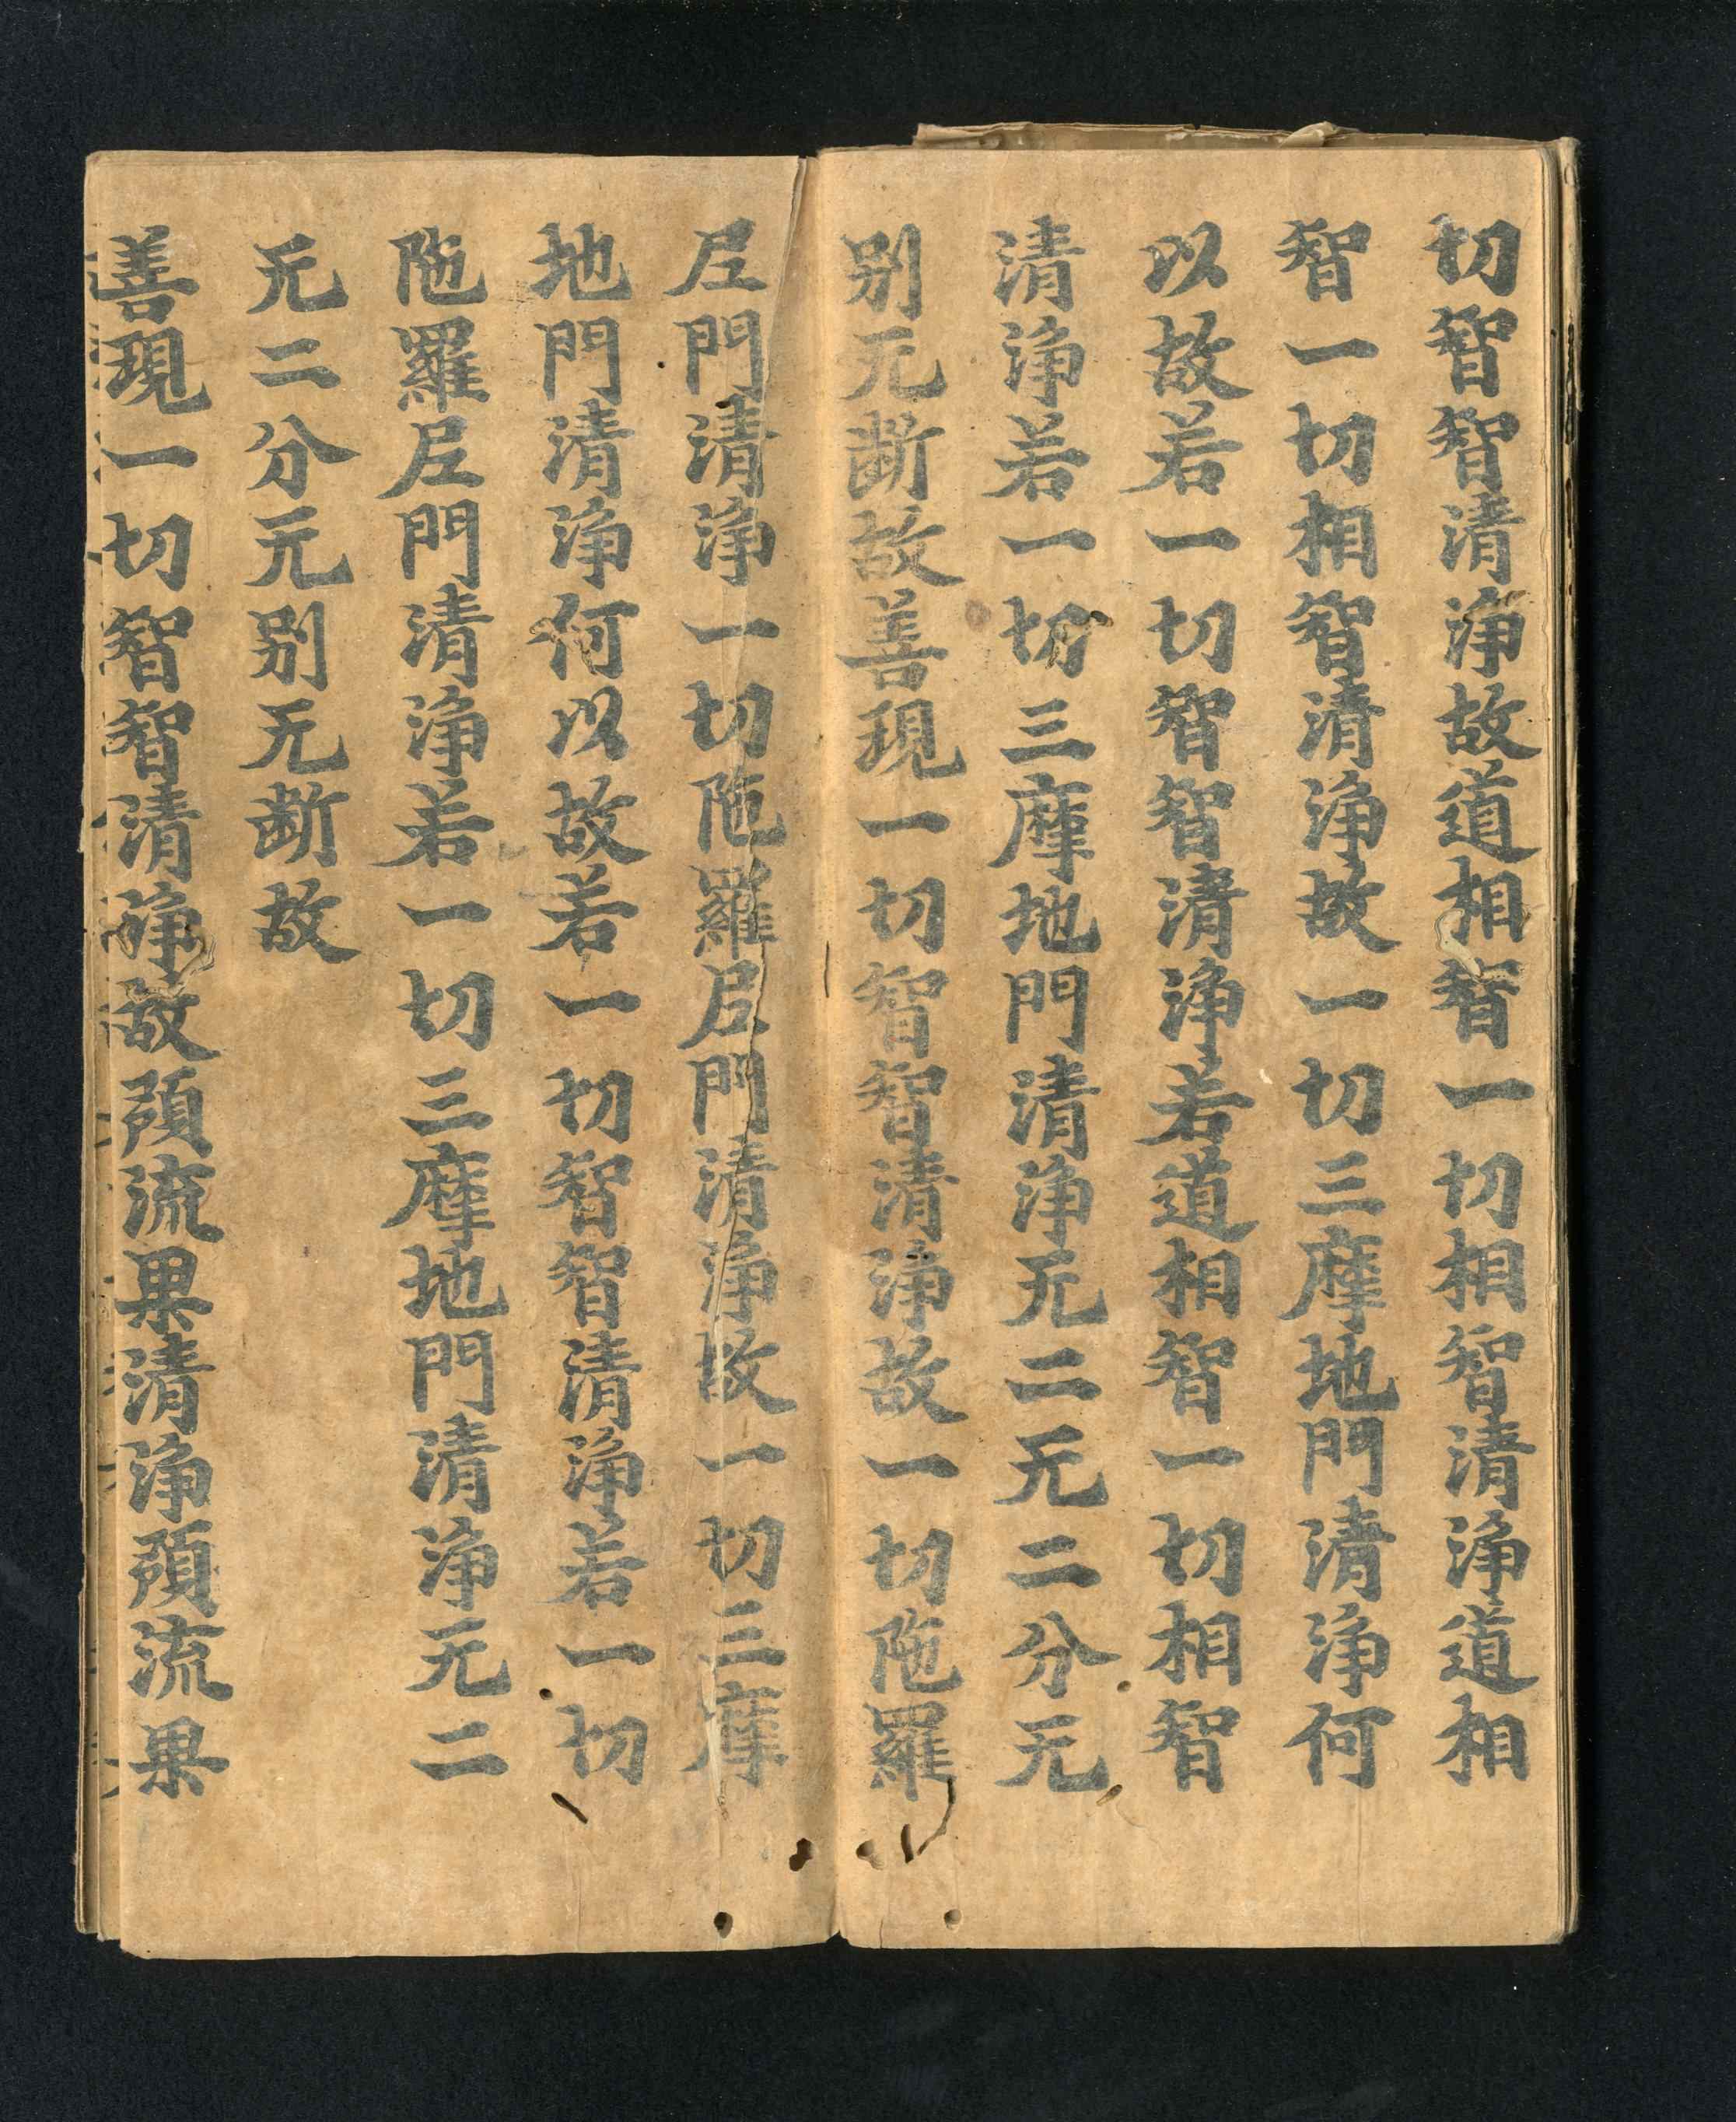 切智智清淨故道相智一切相智清淨道相
智一切相智清淨故一切三摩地門清淨何
以故若一切智智清淨若道相智一切相智
清淨若一切三摩地門清淨无二无二分无
别无断故善現一切智智清淨故一切陁羅
𡰱門清淨一切陁羅𡰱門清淨故一切三摩
地門清淨何以故若一切智智清淨若一切
陁羅𡰱門清淨若一切三摩地門清淨无二
无二分无别无断故
善現一切智智清淨故預流果清淨預流果